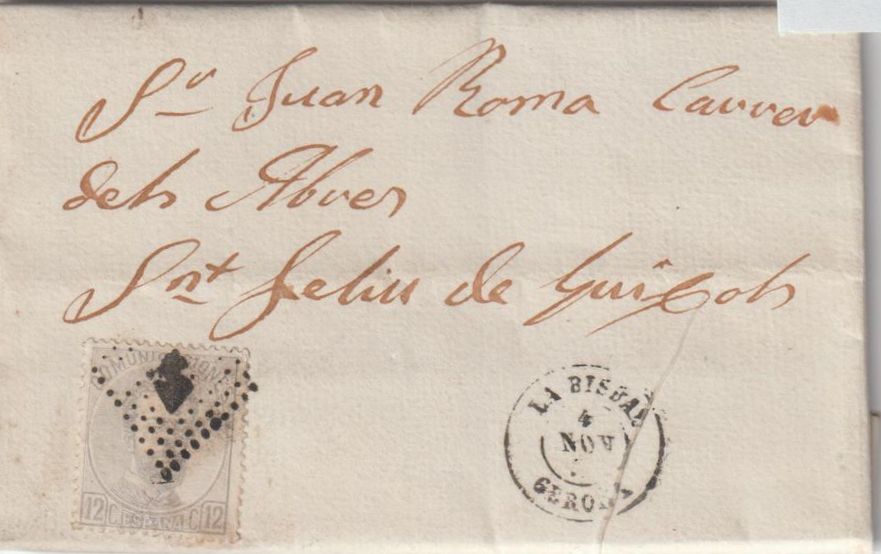 Sr Juan Roma Carrer
dels Abres
Snt Feliu de Guixols
COMUNICACIONES
12 C. ESPAÑA C. 12
LA BISBAL
4
NOV
GERONA